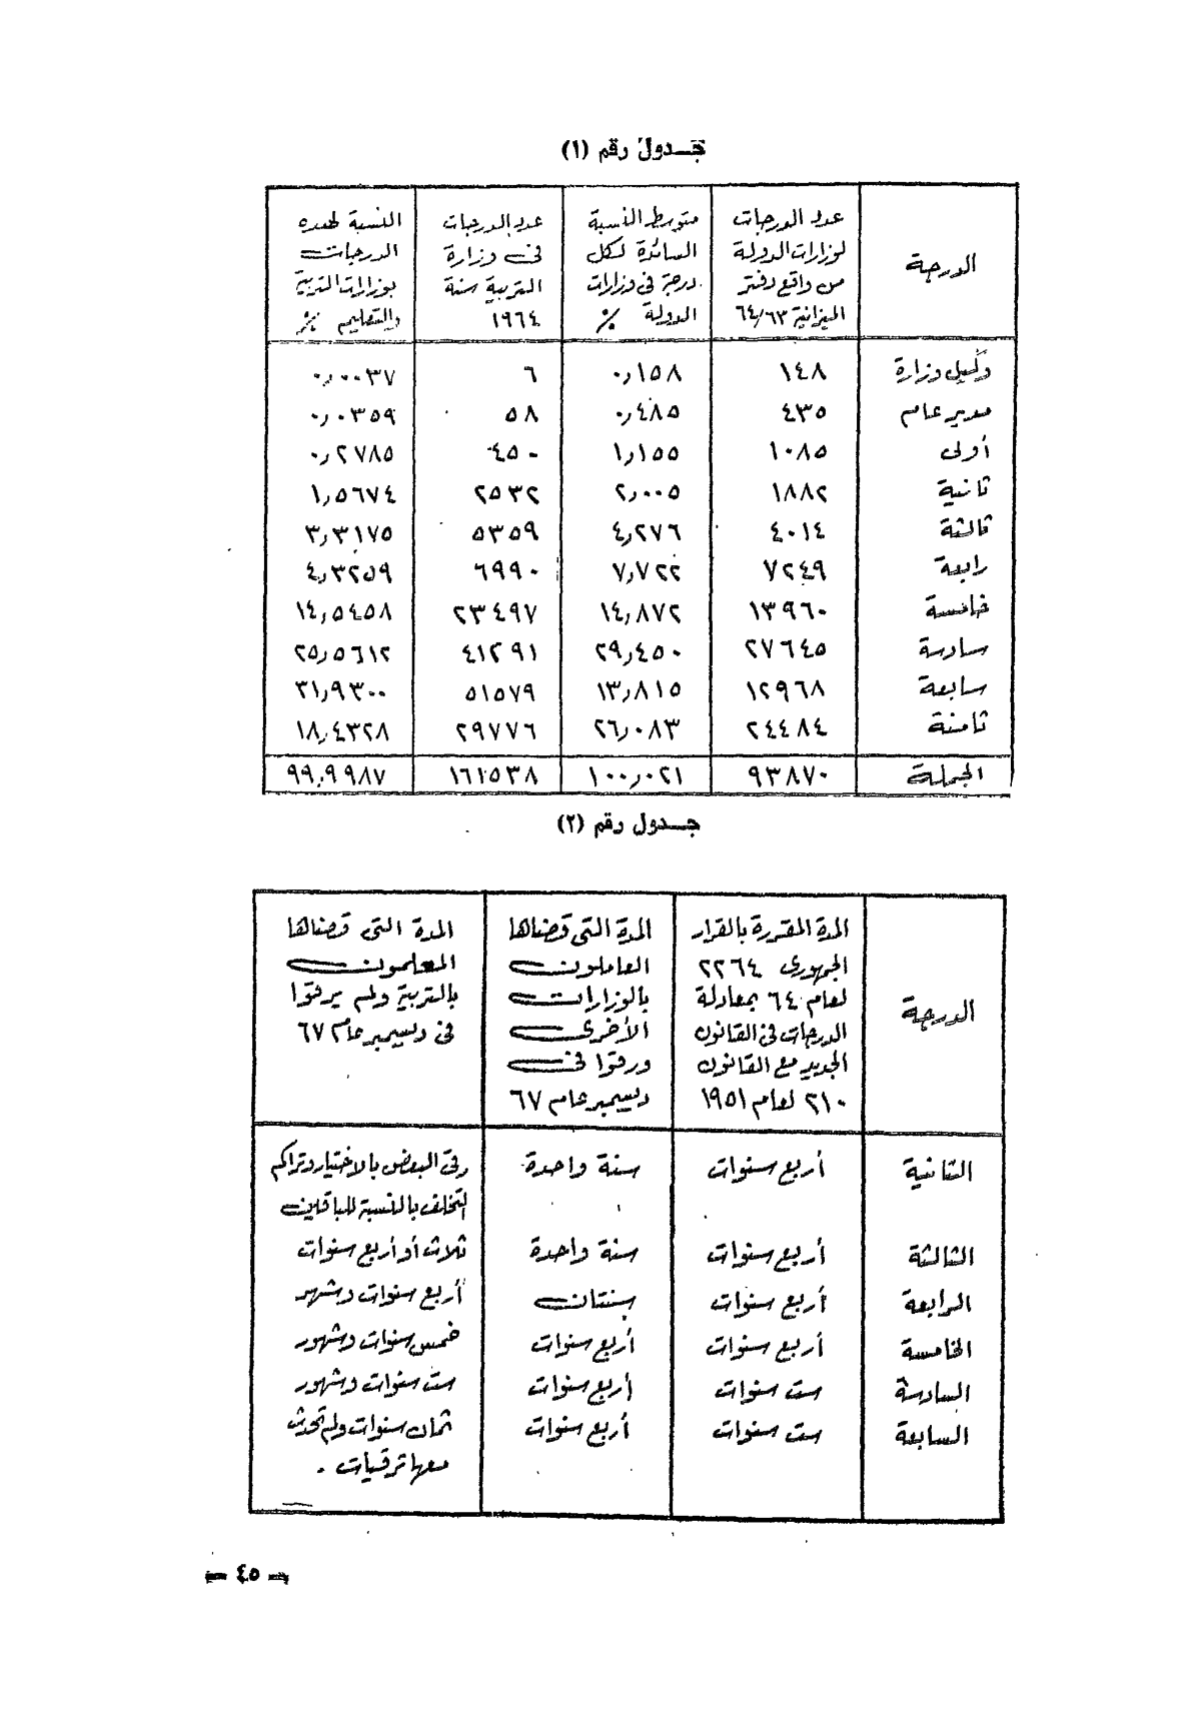 جـدول رقم (١)
الدرجة | عدد الدرجات لوزارات الدولة من واقع دفتر الميزانية ٦٤/٦٣ | متوسط النسبة السائدة لكل درجة فى وزارات الدولة % | عدد الدرجات فى وزارة التربية سنة ١٩٦٤ | النسبة لهذه الدرجات بوزارات التربية والتعليم %
وكيل وزارة | ١٤٨ | ٠,١٥٨ | ٦ | ٠,٠٠٣٧
مدير عام | ٤٣٥ | ٠,٤٨٥ | ٥٨ | ٠,٠٣٥٩
أولى | ١٠٨٥ | ١,١٥٥ | ٤٥٠ | ٠,٢٧٨٥
ثانية | ١٨٨٢ | ٢,٠٠٥ | ٢٥٣٢ | ١,٥٦٧٤
ثالثة | ٤٠١٤ | ٤,٢٧٦ | ٥٣٥٩ | ٣,٣١٧٥
رابعة | ٧٢٤٩ | ٧,٧٢٢ | ٦٩٩٠ | ٤,٣٢٥٩
خامسة | ١٣٩٦٠ | ١٤,٨٧٢ | ٢٣٤٩٧ | ١٤,٥٤٥٨
سادسة | ٢٧٦٤٥ | ٢٩,٤٥٠ | ٤١٢٩١ | ٢٥,٥٦١٢
سابعة | ١٢٩٦٨ | ١٣,٨١٥ | ٥١٥٧٩ | ٣١,٩٣٠٠
ثامنة | ٢٤٤٨٤ | ٢٦,٠٨٣ | ٢٩٧٧٦ | ١٨,٤٣٢٨
الجملة | ٩٣٨٧٠ | ١٠٠,٠٢١ | ١٦١٥٣٨ | ٩٩,٩٩٨٧
جـدول رقم (٢)
الدرجة | المدة المقررة بالقرار الجمهورى ٢٢٦٤ لعام ٦٤ بمعادلة الدرجات فى القانون الجديد مع القانون ٢١٠ لعام ١٩٥١ | المدة التى قضاها العاملون بالوزارات الأخرى ورقوا فى ديسمبر عام ٦٧ | المدة التى قضاها المعلمون بالتربية ولم يرقوا فى ديسمبر عام ٦٧
الثانية | أربع سنوات | سنة واحدة | رقى البعض بالاختيار وتراكم التخلف بالنسبة للباقين
الثالثة | أربع سنوات | سنة واحدة | ثلاث أو أربع سنوات
الرابعة | أربع سنوات | سنتان | أربع سنوات وشهر
الخامسة | أربع سنوات | أربع سنوات | خمس سنوات وشهور
السادسة | ست سنوات | أربع سنوات | ست سنوات وشهور
السابعة | ست سنوات | أربع سنوات | ثمان سنوات ولم تحدث معها ترقيات .
— ٤٥ —